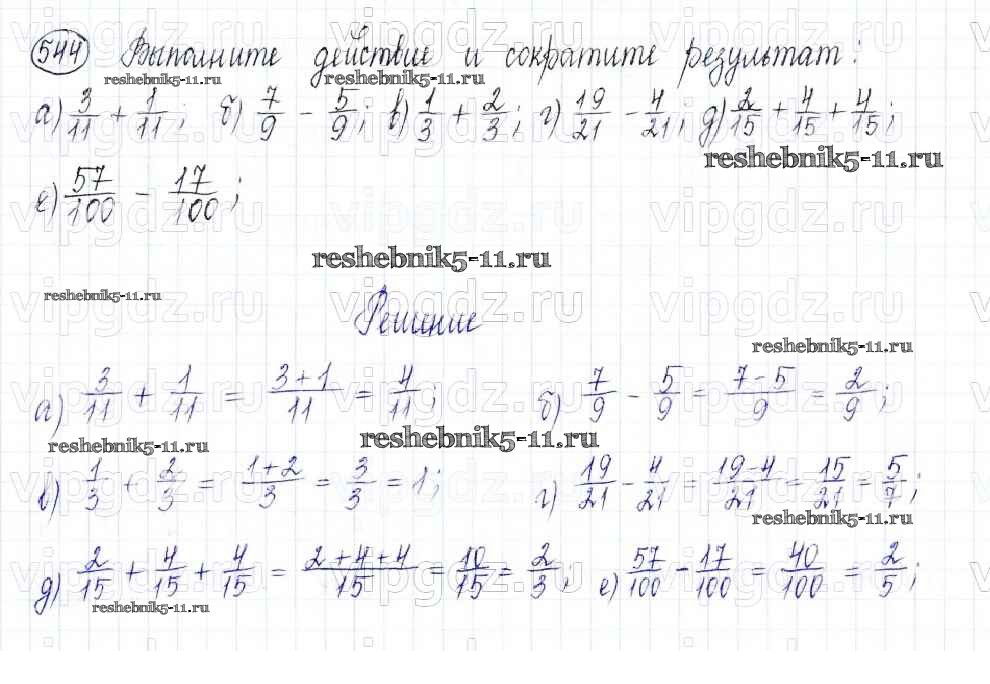 544 Выполните действие и сократите результат:
reshebnik5-11.ru reshebnik5-11.ru
а) 3/11 + 1/11; б) 7/9 - 5/9; в) 1/3 + 2/3; г) 19/21 - 4/21; д) 2/15 + 4/15 + 4/15;
reshebnik5-11.ru
е) 57/100 - 17/100;
vipgdz.ru vipgdz.ru vipgdz.ru
reshebnik5-11.ru
reshebnik5-11.ru
Решение
reshebnik5-11.ru
а) 3/11 + 1/11 = (3+1)/11 = 4/11; б) 7/9 - 5/9 = (7-5)/9 = 2/9;
reshebnik5-11.ru reshebnik5-11.ru
в) 1/3 + 2/3 = (1+2)/3 = 3/3 = 1; г) 19/21 - 4/21 = (19-4)/21 = 15/21 = 5/7;
reshebnik5-11.ru
д) 2/15 + 4/15 + 4/15 = (2+4+4)/15 = 10/15 = 2/3; е) 57/100 - 17/100 = 40/100 = 2/5;
reshebnik5-11.ru